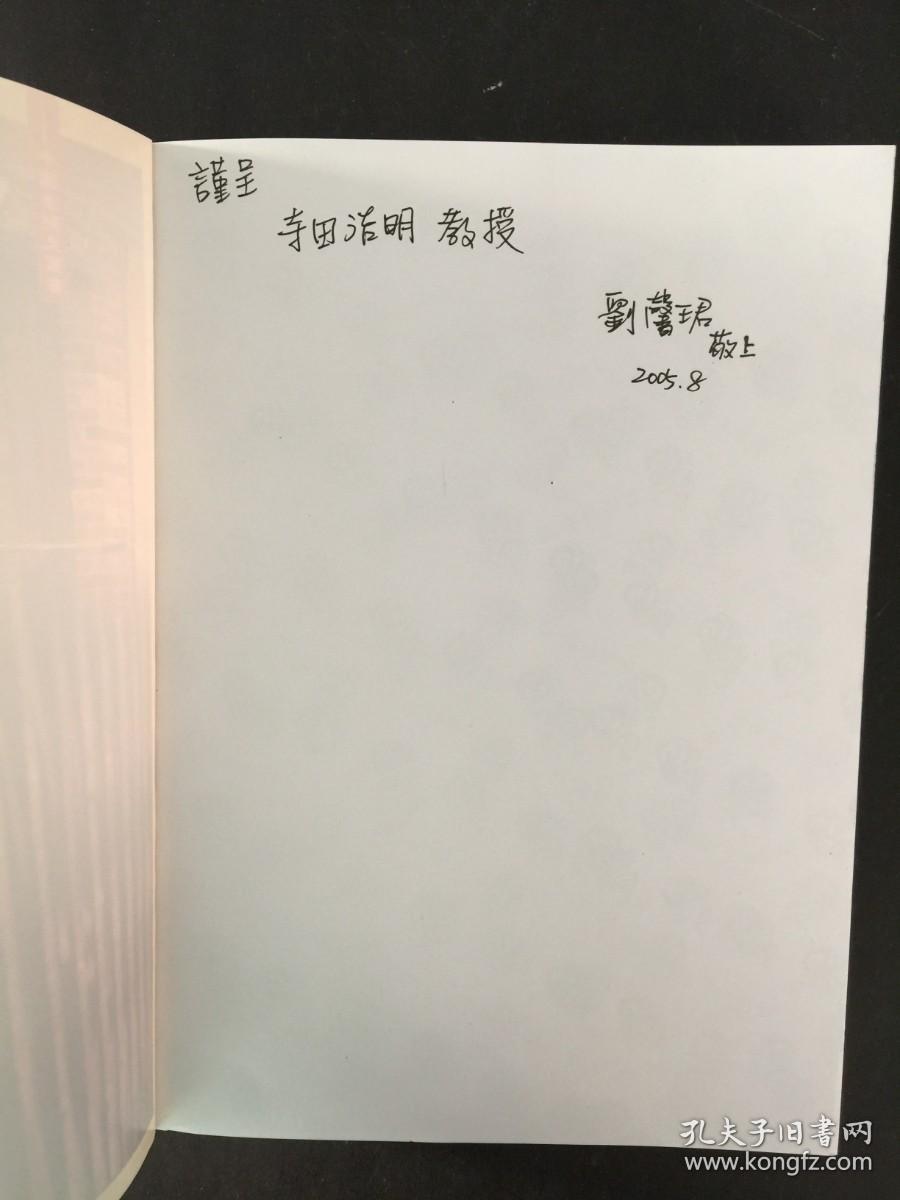 謹呈
寺田浩明 教授
劉馨珺
敬上
2005.8
孔夫子旧书网
www.kongfz.com